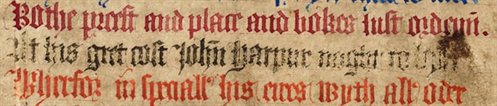 Bothe preest and place and bokes iust ordeyn.
At his gret cost John Harpur noght to
Wherfor in speciall his eires wyth all oder